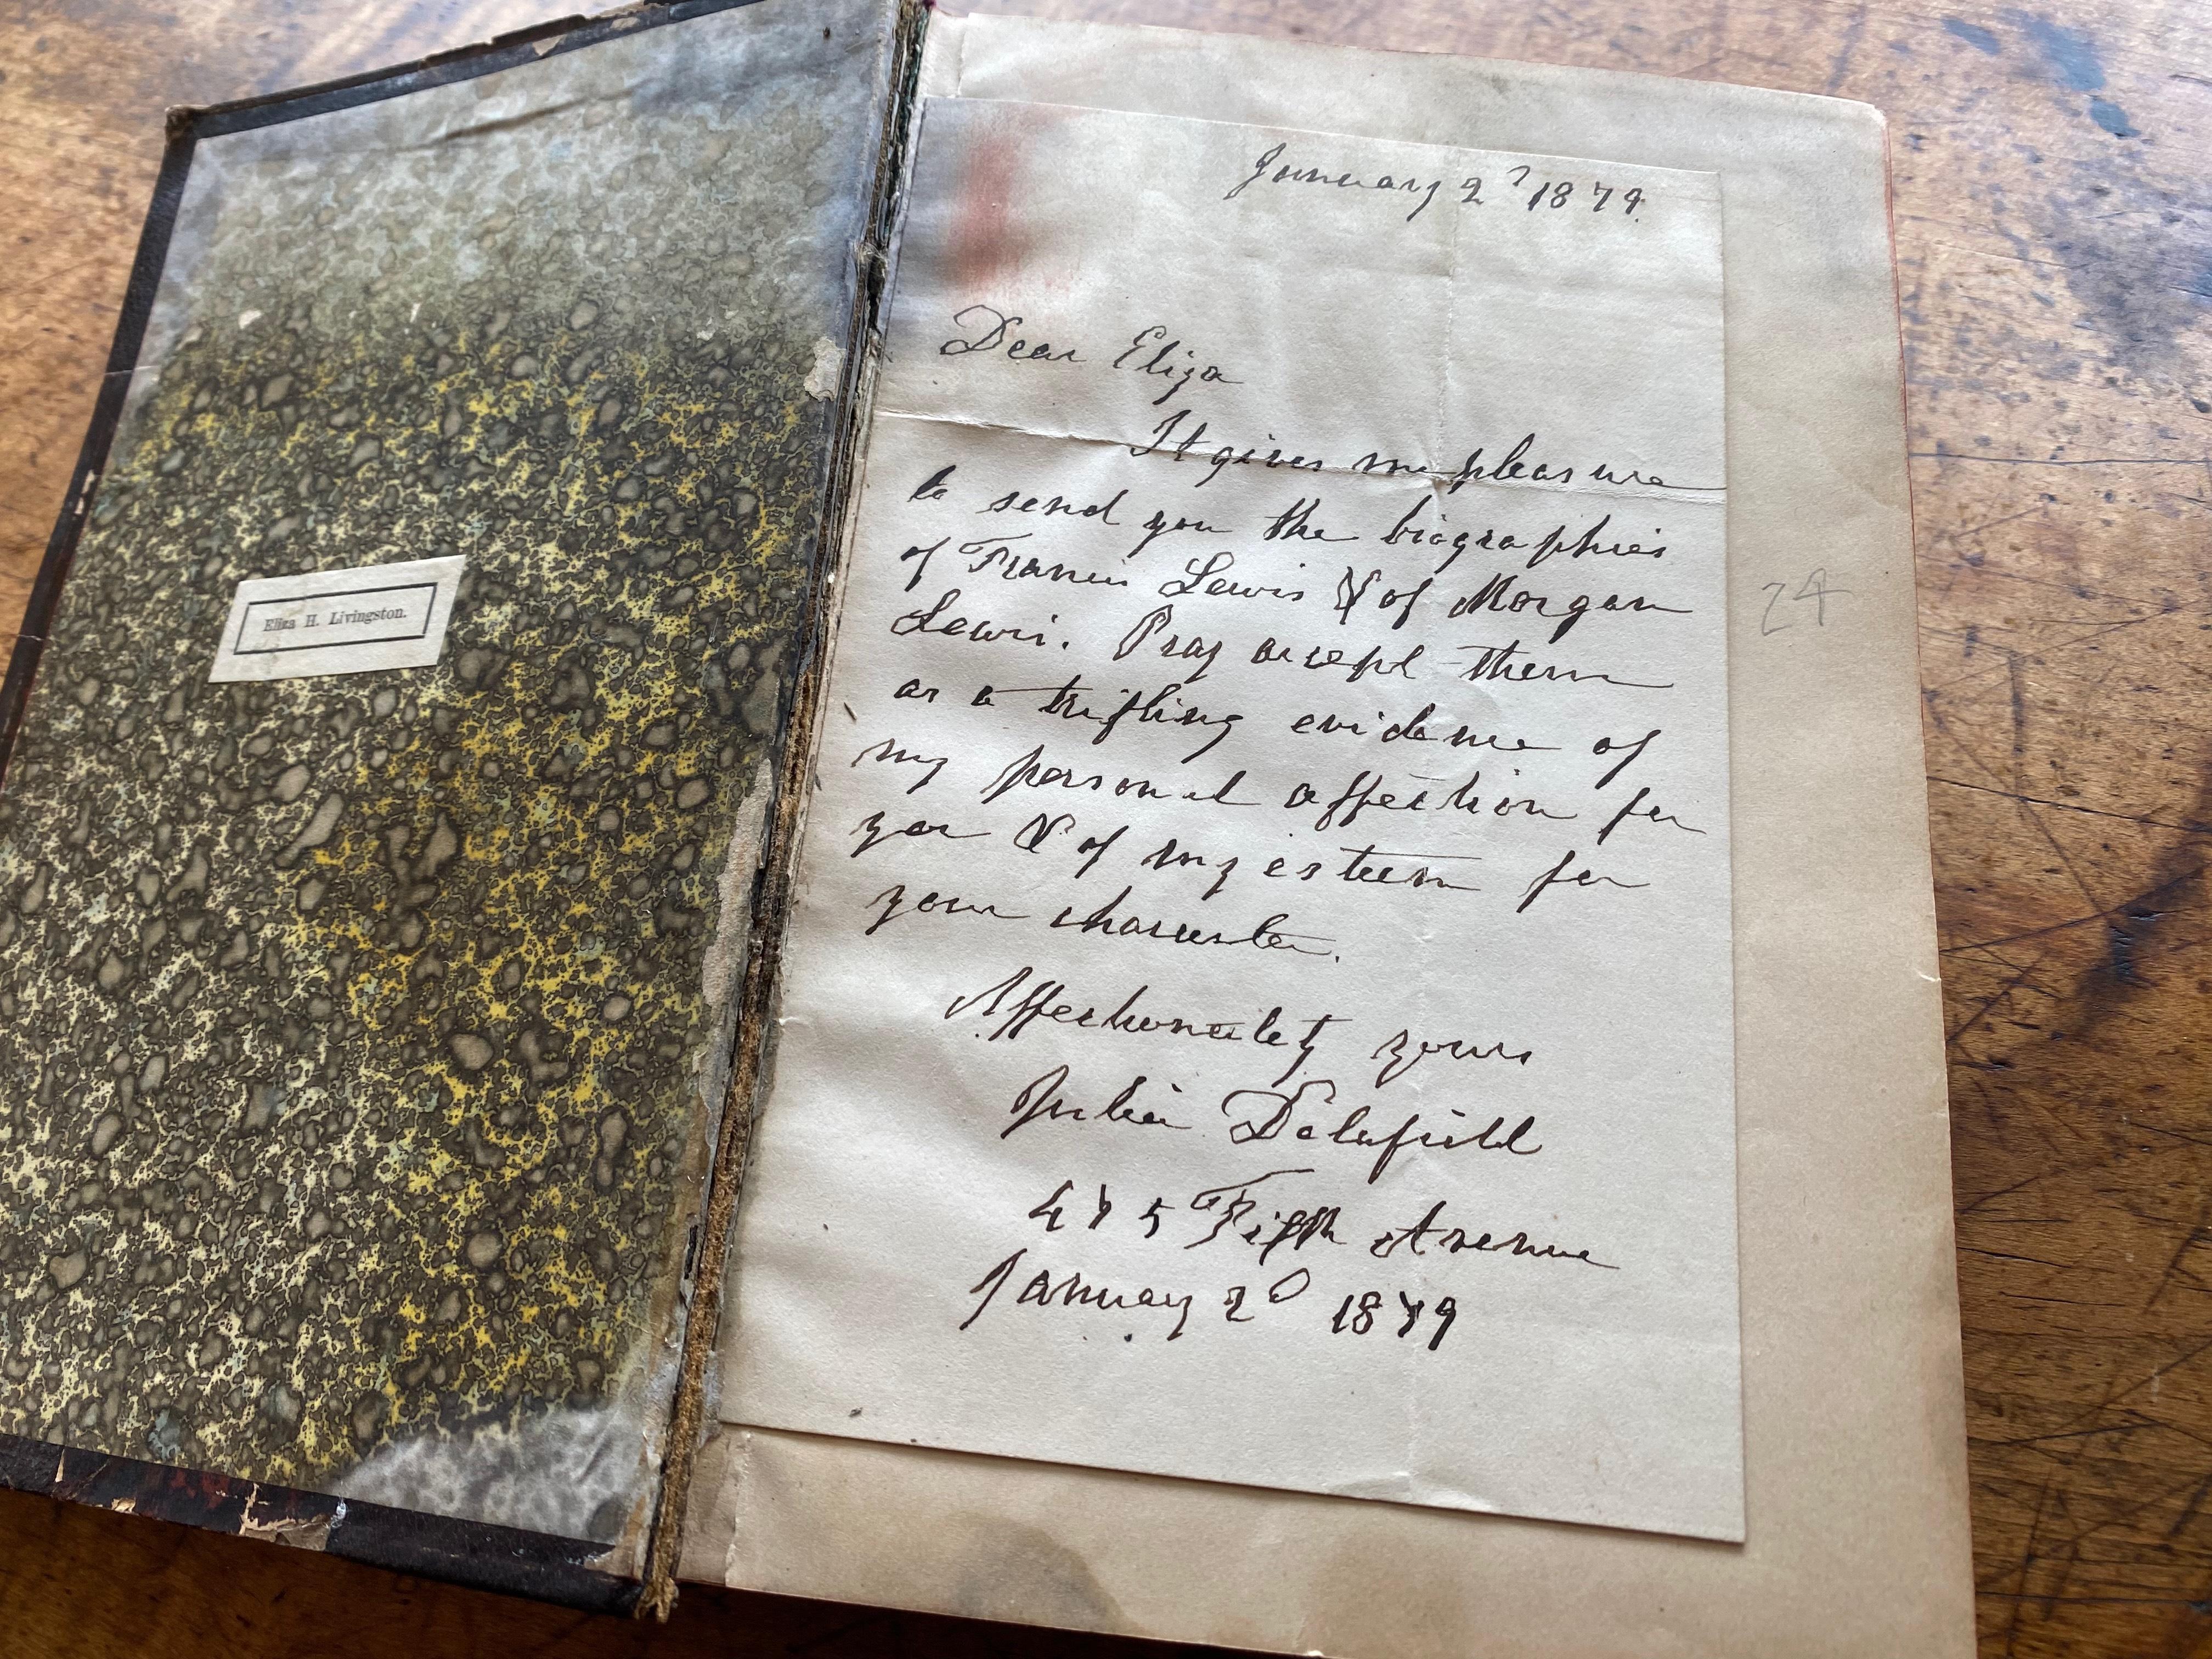 Eliza H. Livingston.
January 2d 1879.
Dear Eliza
It gives me pleasure
to send you the biographies
of Francis Lewis & of Morgan
Lewis. Pray accept them
as a trifling evidence of
my personal affection for
you & of my esteem for
your character.
Affectionately yours
Julia Delafield
475 Fifth Avenue
January 2d 1879
24